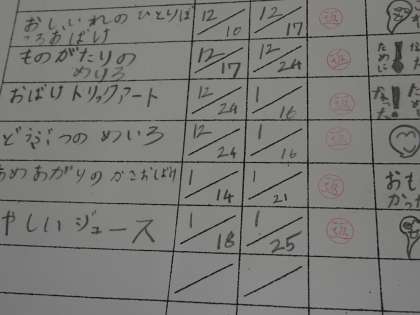 おしいれの ひとりぼ 12/10 12/17 返
ろおばけ
ものがたりの 12/17 12/24 返 ため
めいろ に!
おばけトリックアート 12/24 1/16 返
どうぶつの めいろ 12/24 1/16 返
あめあがりの かさおばけ 1/14 1/21 返 おも
かっ
やしいジュース 1/18 1/25 返